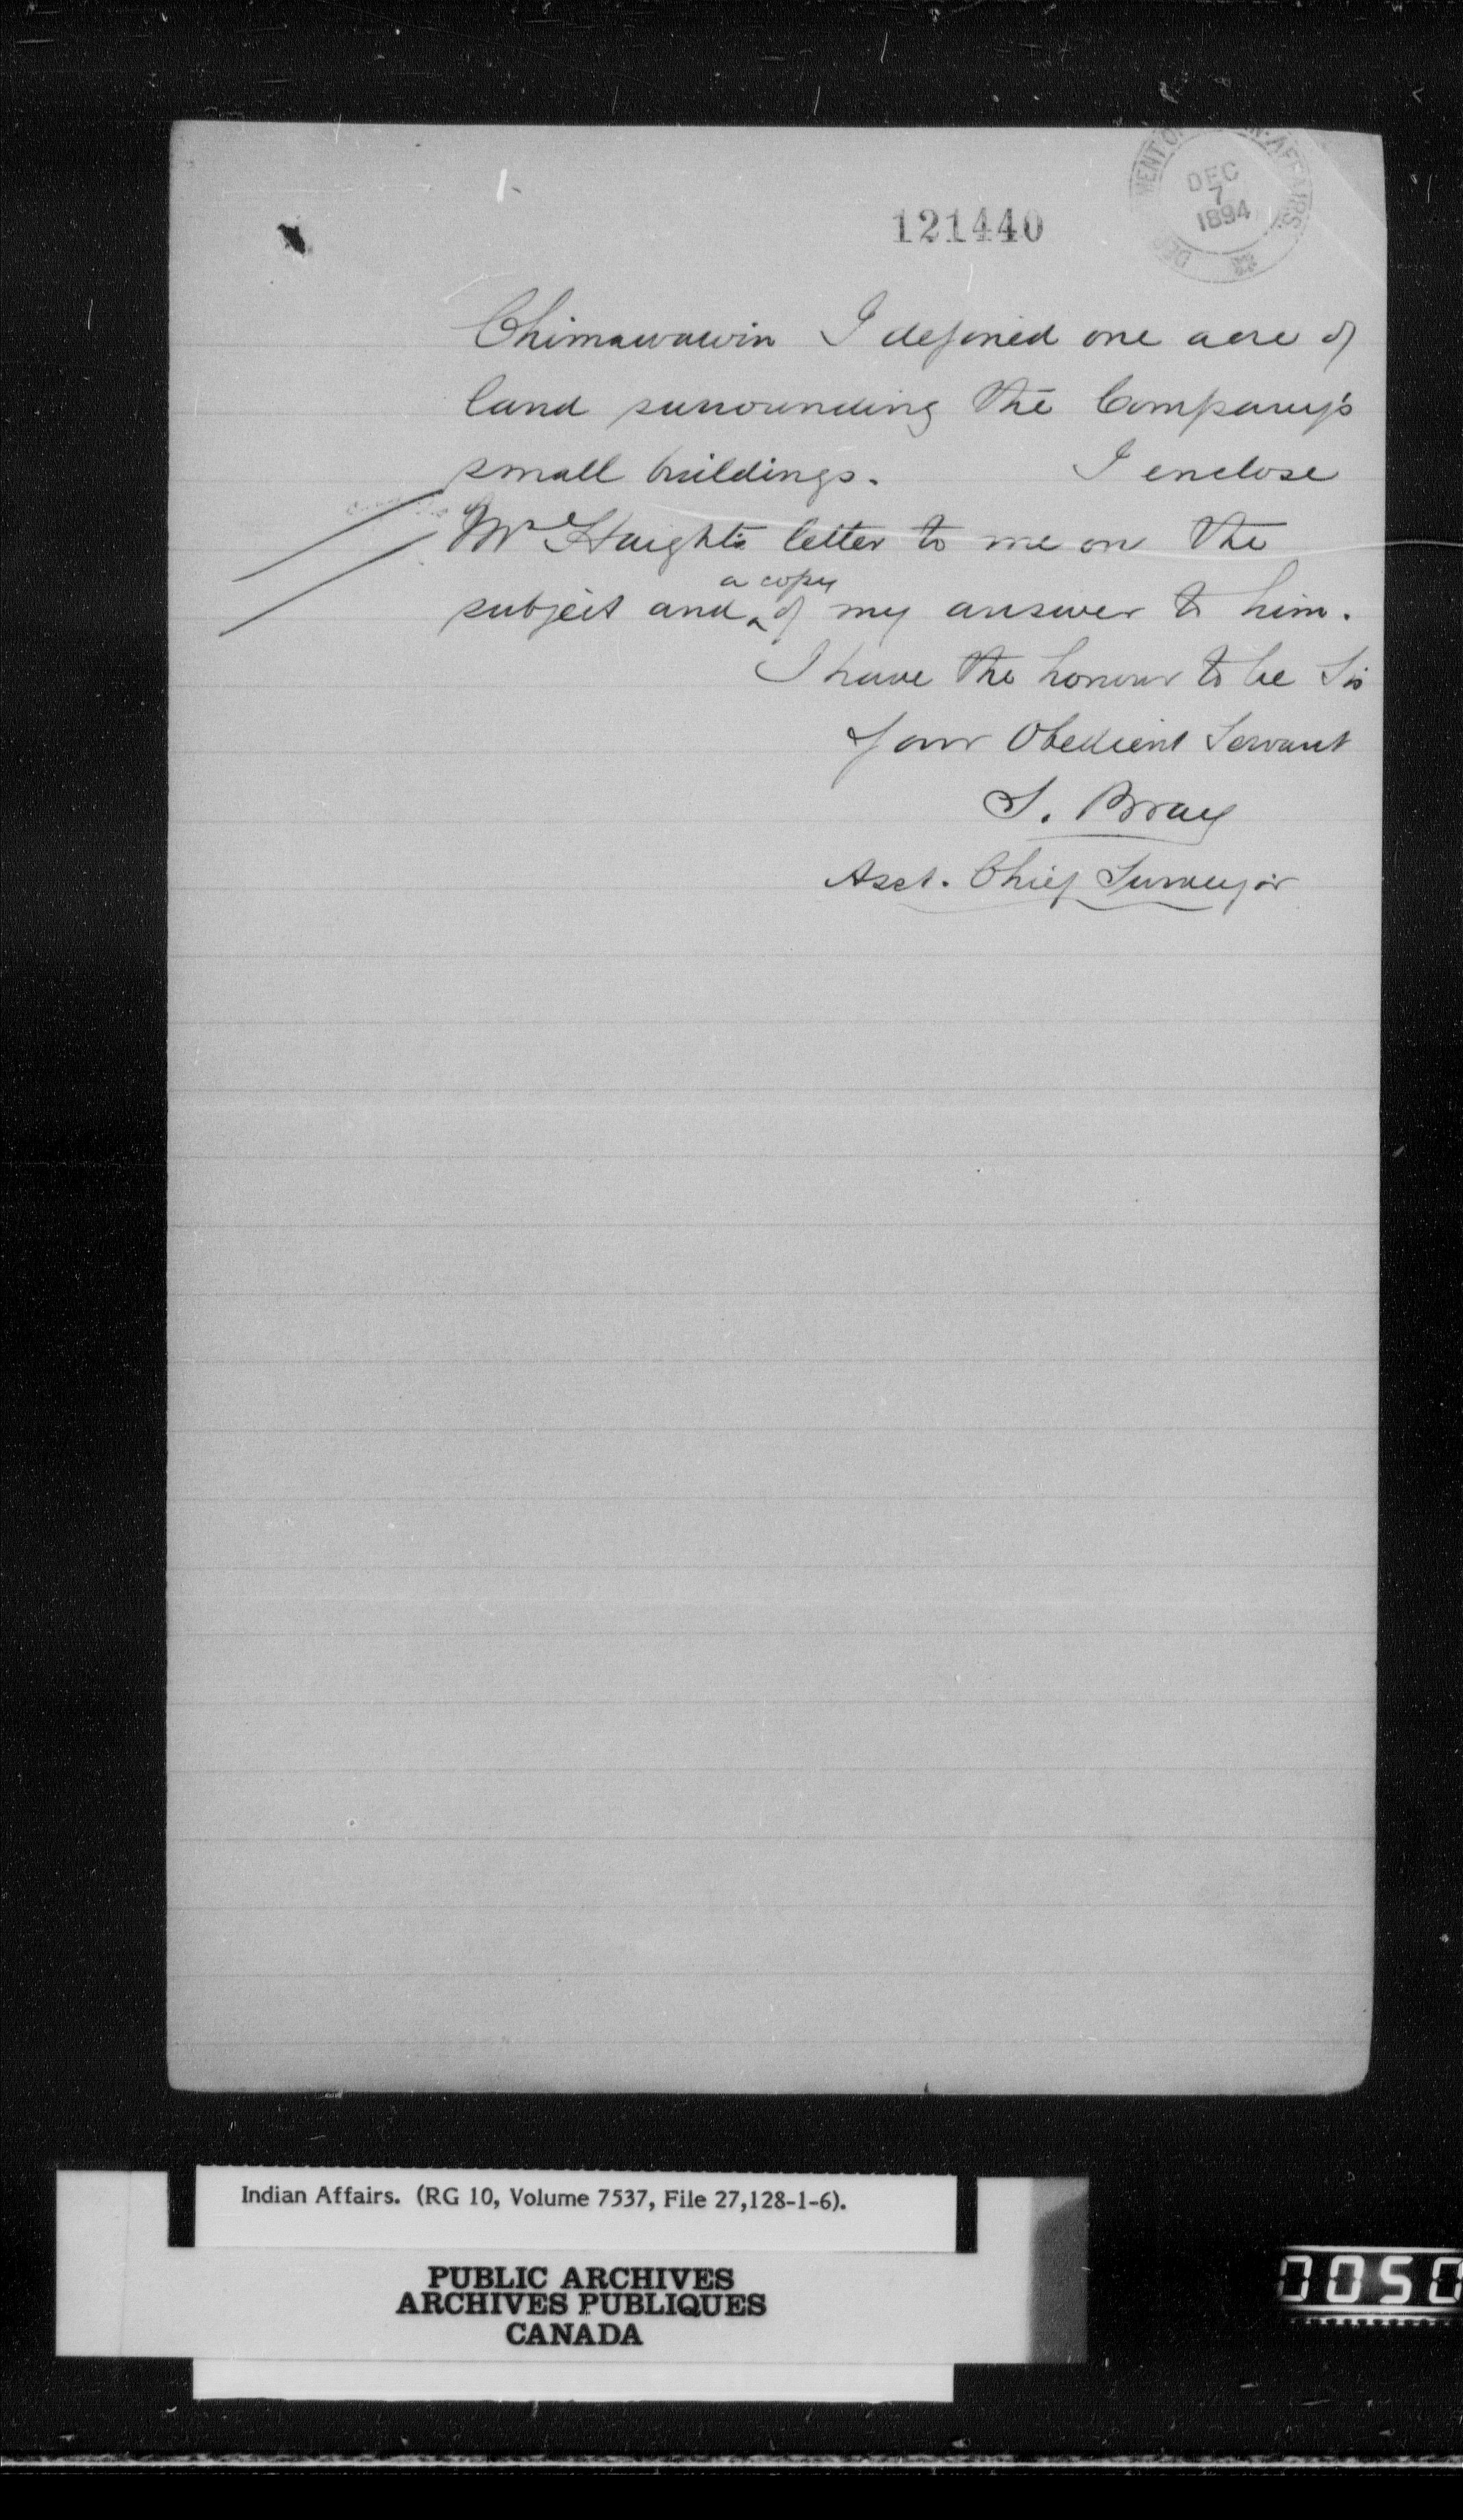 DEPARTMENT OF INDIAN AFFAIRS.
DEC
7
1894
121440
Chimawawin I defined one acre of
land surrounding the Company's
small buildings. I enclose
Mr Haight's letter to me on the
a copy
subject and ^ of my answer to him.
I have the honour to be Sir
Your Obedient Servant
S. Bray
Asst. Chief Surveyor
Indian Affairs. (RG 10, Volume 7537, File 27,128-1-6).
PUBLIC ARCHIVES
ARCHIVES PUBLIQUES
CANADA
0050